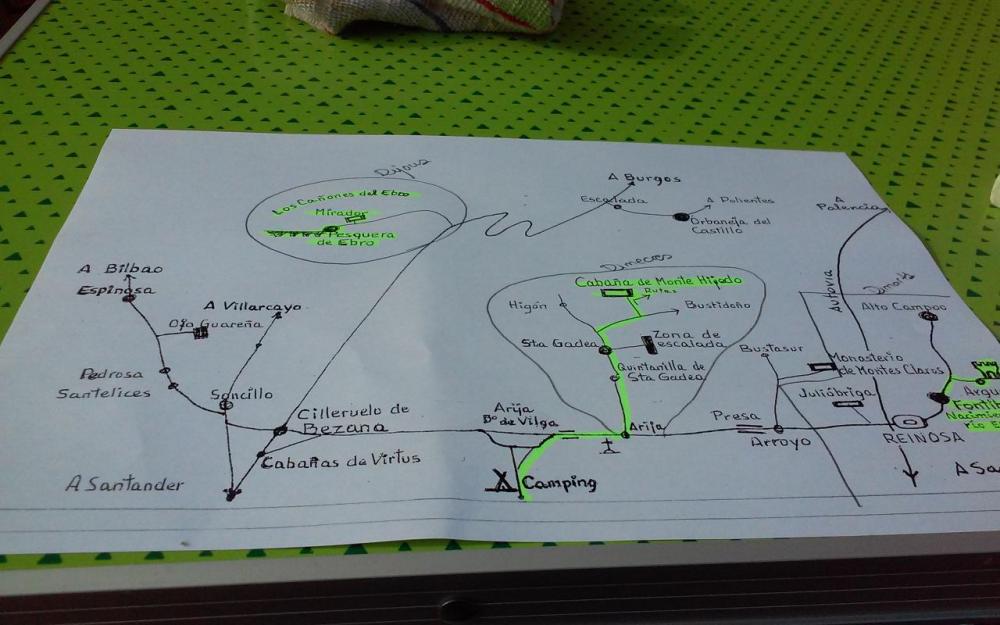 Los Cañones del Ebro
Mirador
Pesquera
de Ebro
A Burgos
Escalada
A Polientes
Orbaneja del
Castillo
A
Palencia
A Bilbao
Espinosa
Ojo Guareña
A Villarcayo
Pedrosa
Santelices
Soncillo
Cilleruelo de
Bezana
Cabañas de Virtus
A Santander
Cabaña de Monte Hijedo
Rutas
Higón
Bustidoño
Sta Gadea
Zona de
escalada
Quintanilla de
Sta Gadea
Arija
Bº de Vilga
Arija
Camping
Presa
Arroyo
Bustasur
Autovia
Monasterio
de Montes Claros
Julióbriga
Alto Campoo
REINOSA
Argu
Fonti
Nacimie
río E
A Sa